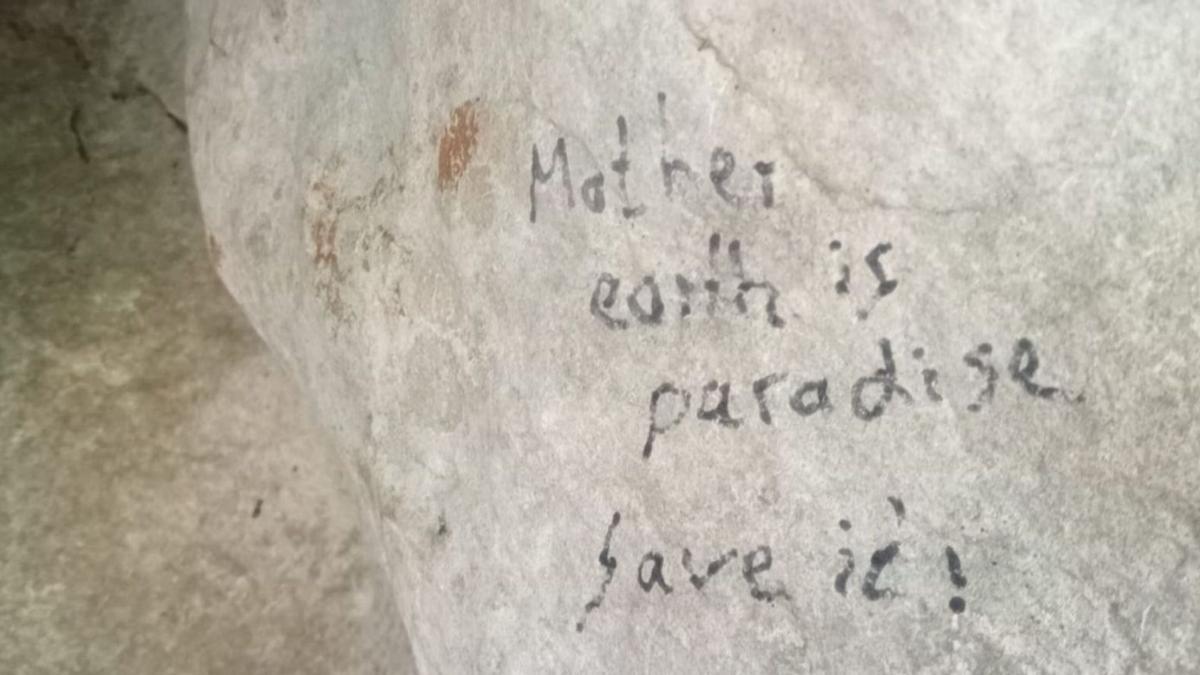 Mother
earth is
paradise
Save it!